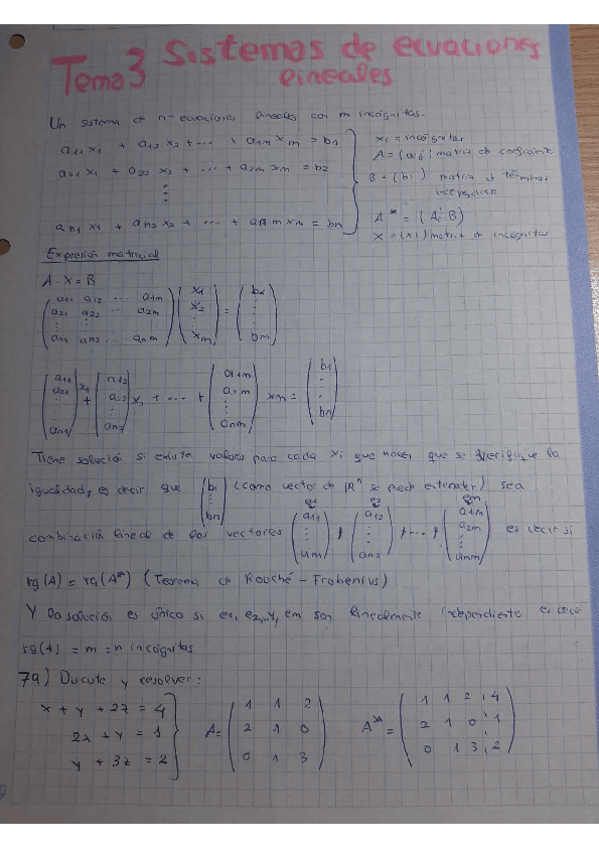 Tema 3 Sistemas de ecuaciones
lineales
Un sistema de n-ecuaciones lineales con m incógnitas.
a11 x1 + a12 x2 + ... + a1m xm = b1
a21 x1 + a22 x2 + ... + a2m xm = b2
⋮
an1 x1 + an2 x2 + ... + anm xm = bn
xi = incógnitas
A = (aij) matriz de coeficiente
B = (bi) matriz de términos
A* = (A¦B)
X = (xi) matriz de incógnitas
Expresión matricial
A · X = B
( a11 a12 ... a1m ) ( x1 ) ( b1 )
( a21 a22 ... a2m ) ( x2 ) = ( ⋮ )
( ⋮ ) ( ⋮ ) ( ⋮ )
( an1 an2 ... anm ) ( xm ) ( bm )
( a11 ) ( a12 ) ( a1m ) ( b1 )
( a21 ) x1 + ( a22 ) x2 + ... + ( a2m ) xm = ( ⋮ )
( ⋮ ) ( ⋮ ) ( ⋮ ) ( ⋮ )
( an1 ) ( an2 ) ( anm ) ( bn )
Tiene solución si exista valores para cada xi que hacen que se verifique la
igualdad, es decir que ( b1 ⋮ bn ) (como vector de ℝⁿ se puede entender) sea
e1 e2 em
combinación lineal de los vectores ( a11 ⋮ an1 ) , ( a12 ⋮ an2 ) , ... , ( a1m a2m ⋮ anm ) es decir si
rg(A) = rg(A*) (Teorema de Rouché - Frobenius)
Y la solución es única si e1, e2, ..., em son linealmente independiente es decir
rg(A) = m = n incógnitas
79) Discute y resolver:
x + y + 2z = 4
2x + y = 1
y + 3z = 2
A = ( 1 1 2
2 1 0
0 1 3 )
A* = ( 1 1 2 ¦ 4
2 1 0 ¦ 1
0 1 3 ¦ 2 )